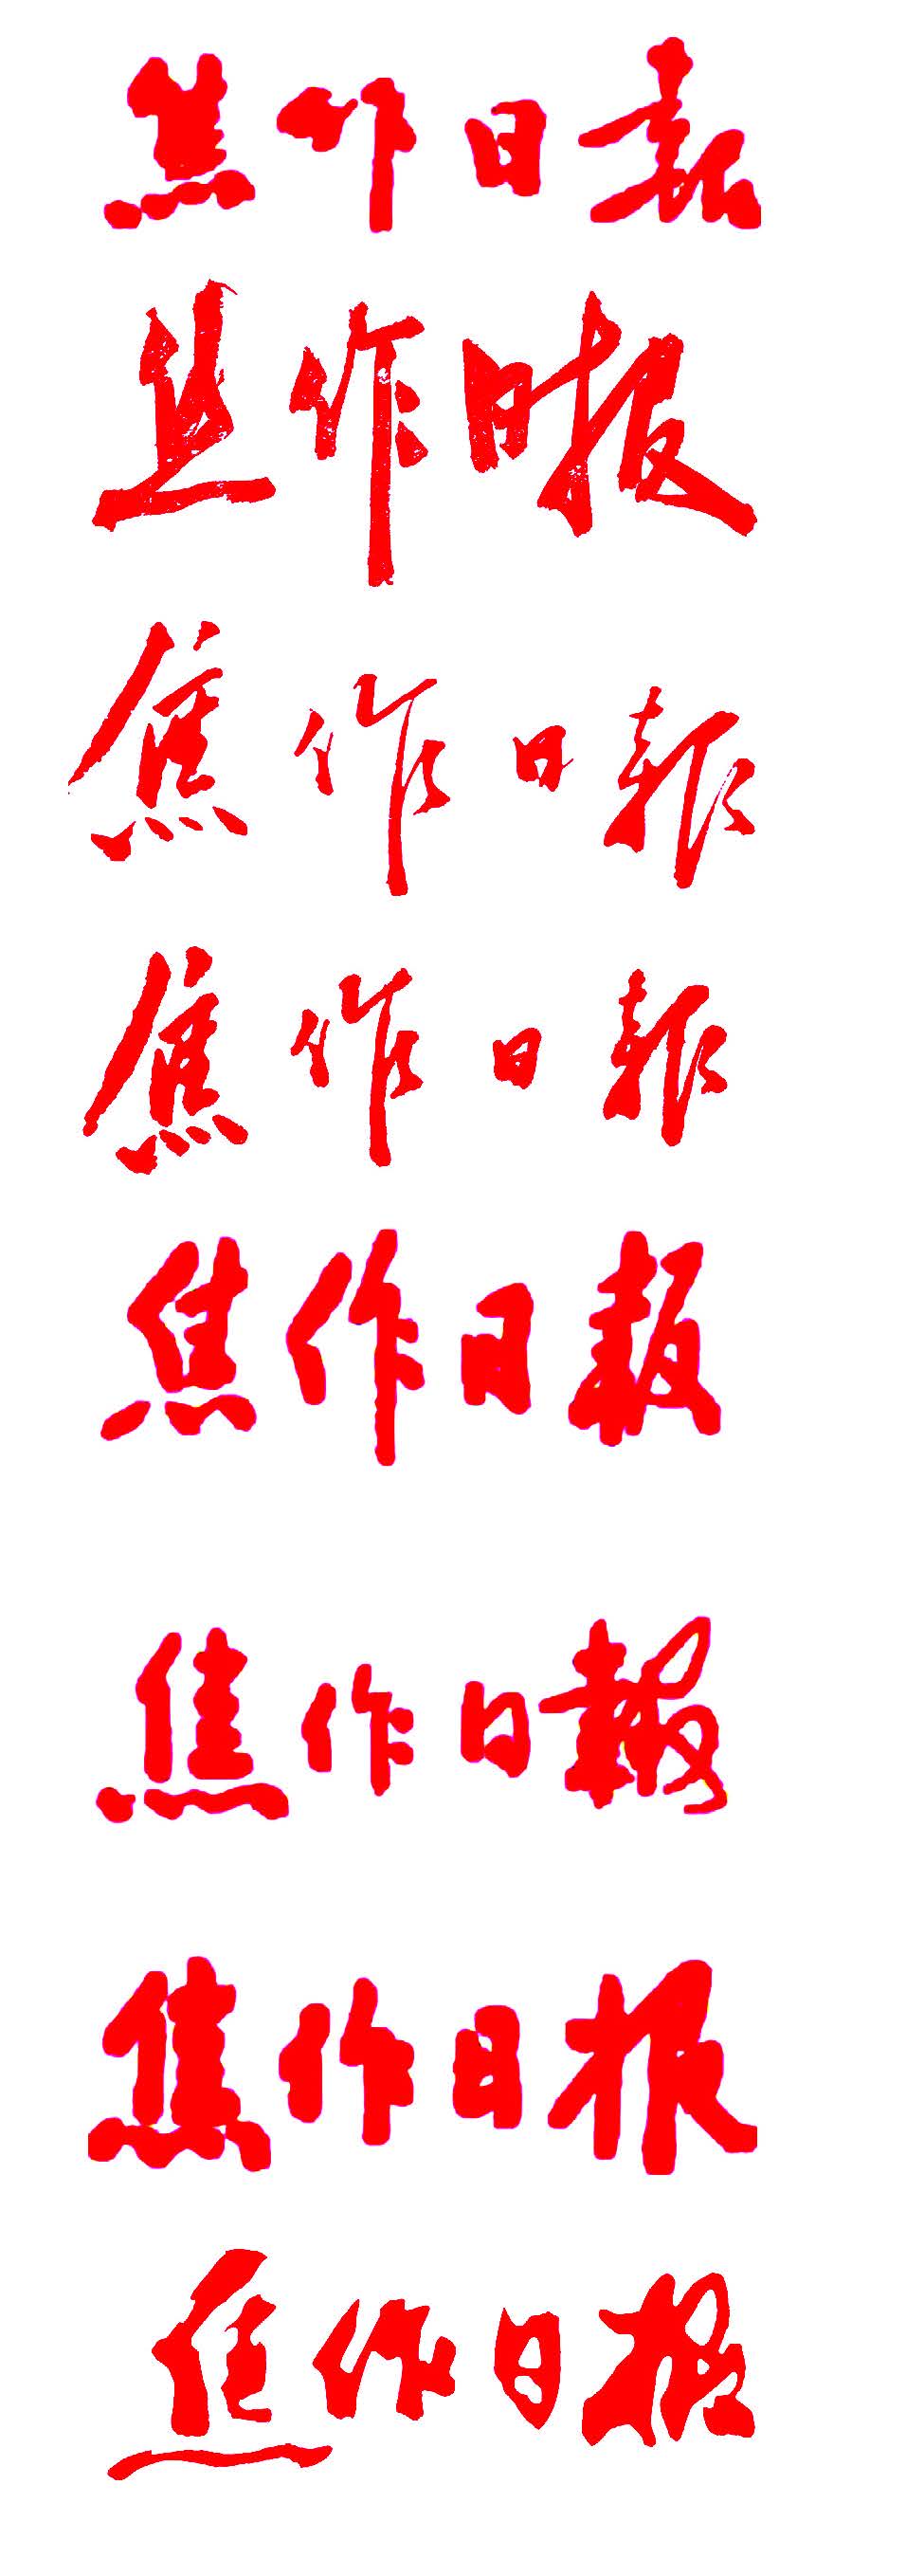 焦作日報
焦作日报
焦作日報
焦作日報
焦作日報
焦作日報
焦作日报
焦作日报